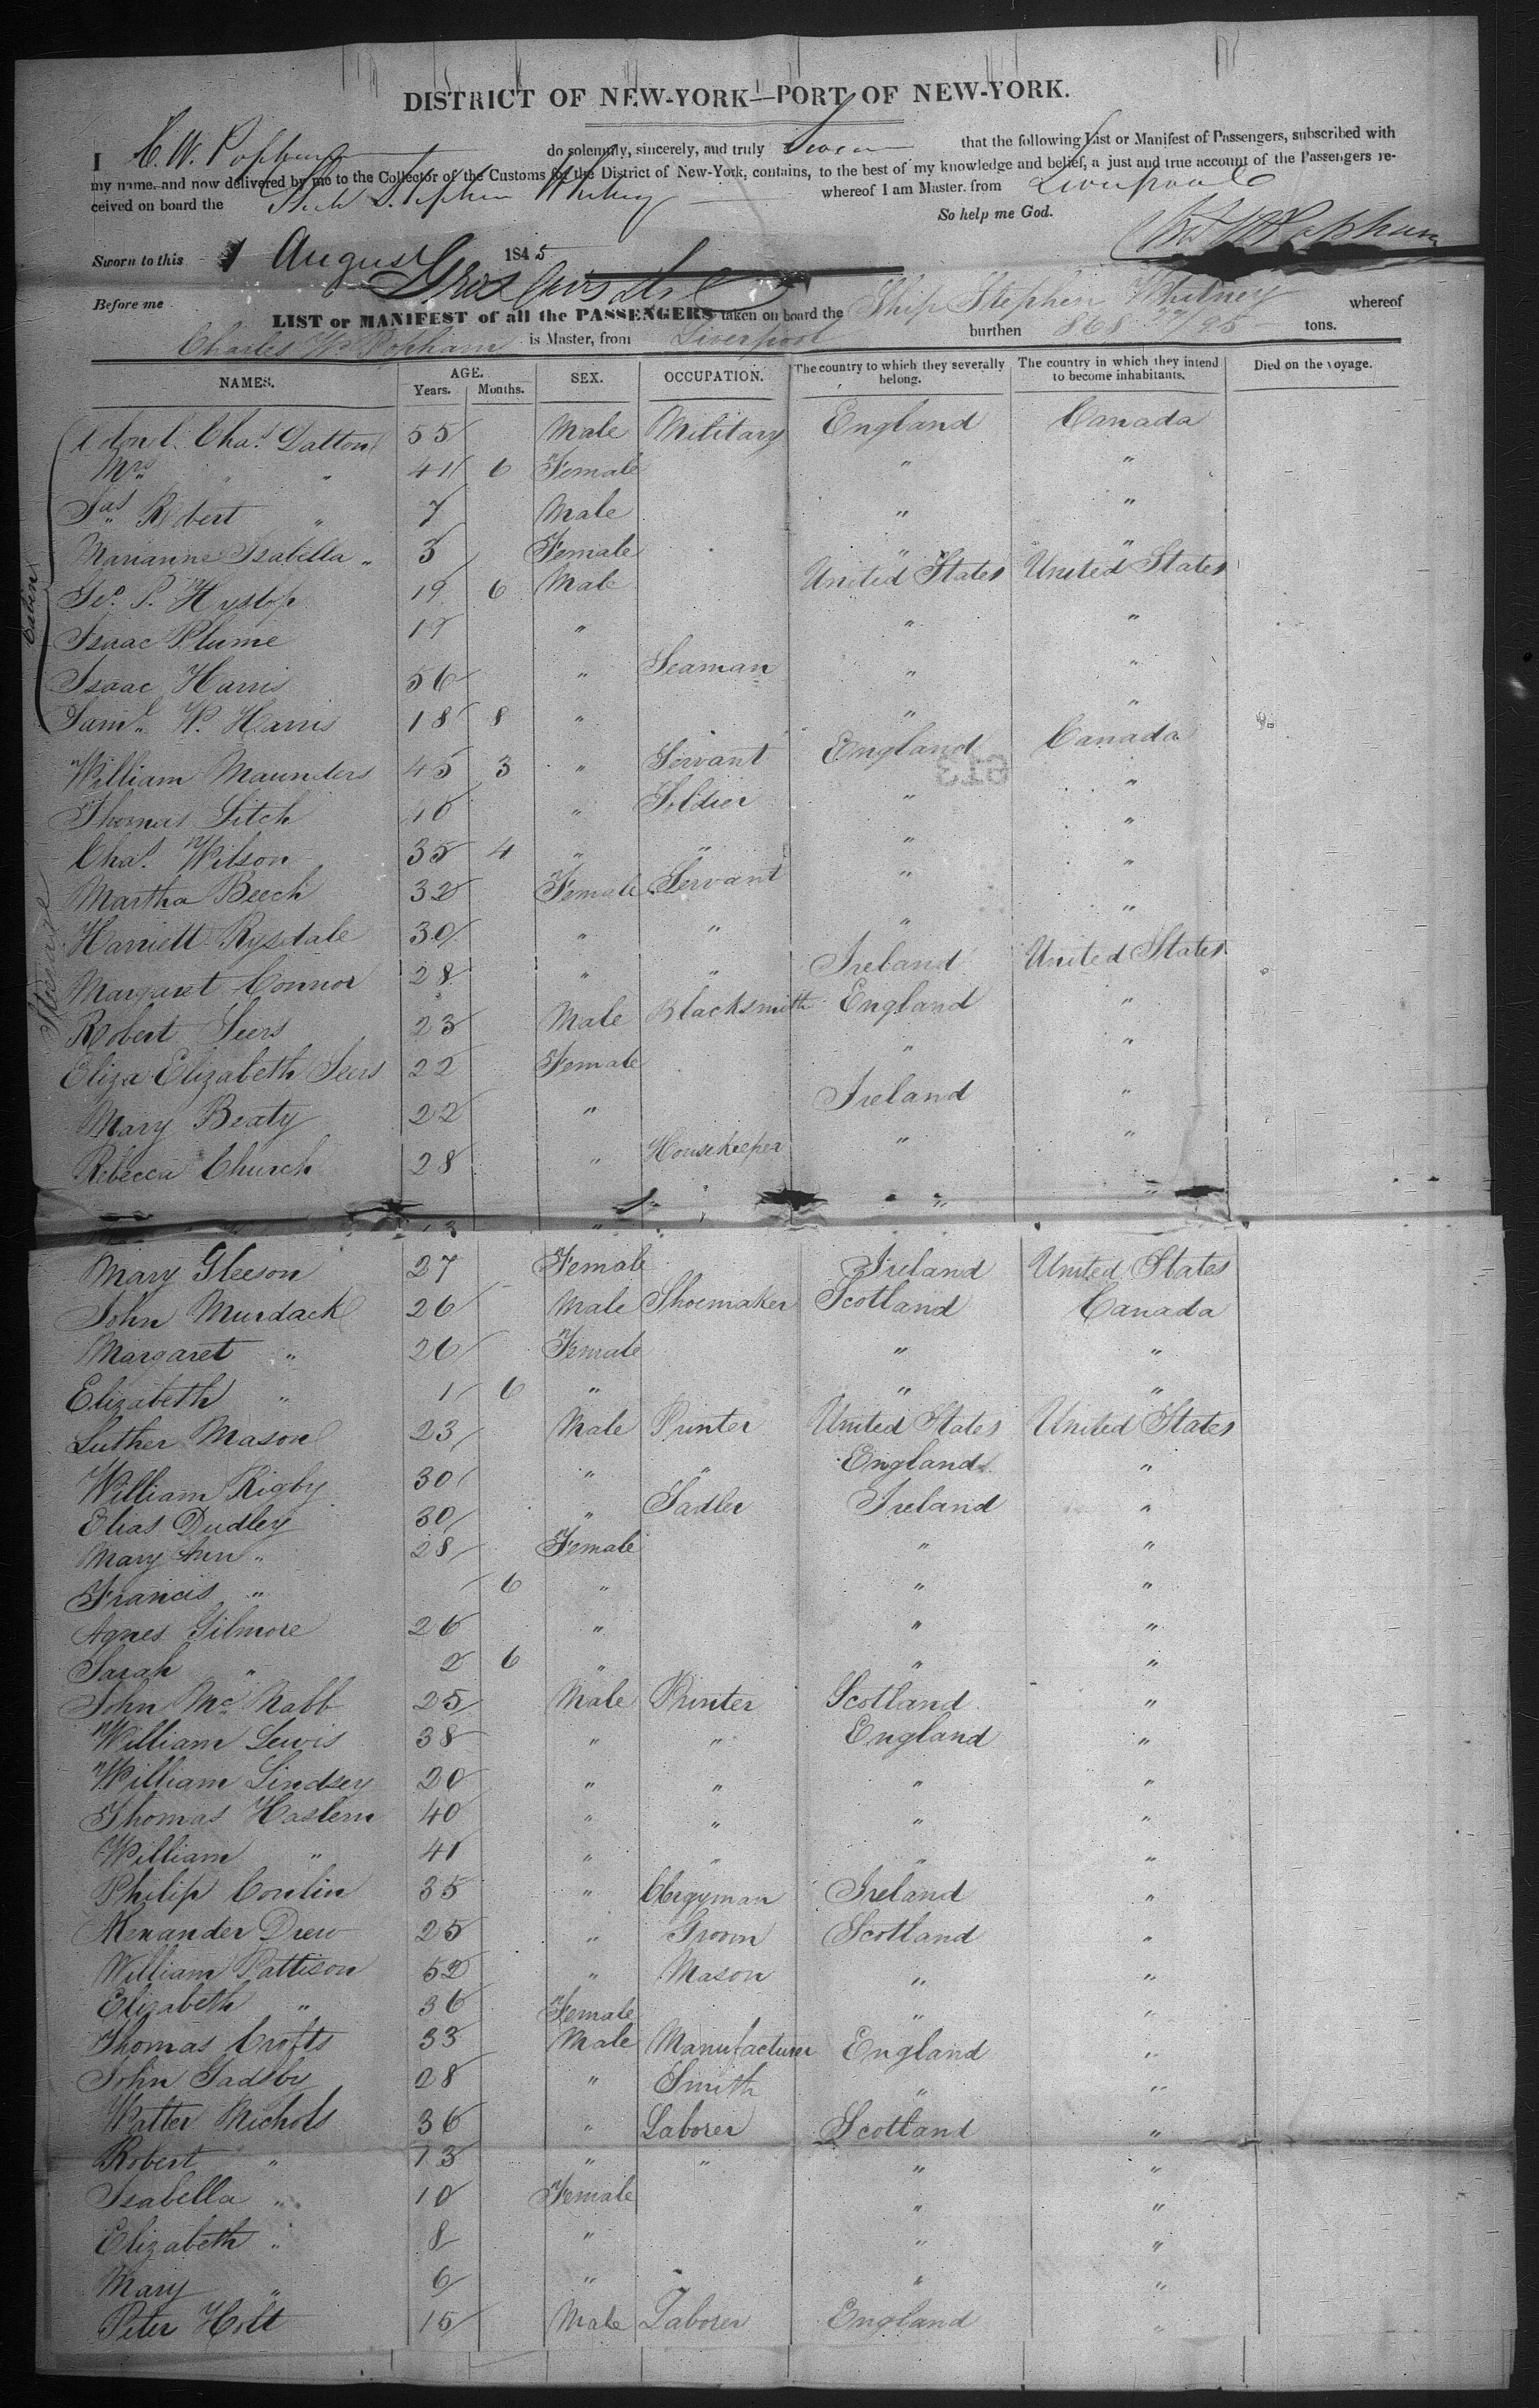 DISTRICT OF NEW-YORK—PORT OF NEW-YORK.
I C. W. Popham do solemnly, sincerely, and truly Swear that the following List or Manifest of Passengers, subscribed with
my name, and now delivered by me to the Collector of the Customs for the District of New-York, contains, to the best of my knowledge and belief, a just and true account of the Passengers re-
ceived on board the Ship Stephen Whitney whereof I am Master, from Liverpool
So help me God.
Sworn to this 1 August 1845 Chs W Popham
Before me
LIST or MANIFEST of all the PASSENGERS taken on board the Ship Stephen Whitney whereof
Charles W. Popham is Master, from Liverpool burthen 868 77/95 tons.
NAMES. AGE. Years. Months. SEX. OCCUPATION. The country to which they severally belong. The country in which they intend to become inhabitants. Died on the voyage.
Cabin
Colonel Chas. Dalton 55 Male Military England Canada
Mrs " " 41 6 Female " "
Jas Robert " 7 Male " "
Marianne Isabella " 3 Female " "
Geo. P. Hyslop 19 6 Male United States United States
Isaac Plume 19 " " "
Isaac Harris 56 " Seaman " "
Saml. W. Harris 18 8 " " "
Steerage
William Maunders 45 3 " Servant England Canada
613
Thomas Fitch 40 " Soldier " "
Chas. Wilson 35 4 " " " "
Martha Beech 32 Female Servant " "
Harriett Rysdale 30 " " " "
Margaret Connor 28 " " Ireland United States
Robert Seers 23 Male Blacksmith England "
Eliza Elizabeth Seers 22 Female " "
Mary Beaty 22 " Ireland "
Rebecca Church 28 " Housekeeper " "
" "
13 "
Mary Gleeson 27 Female Ireland United States
John Murdack 26 Male Shoemaker Scotland Canada
Margaret " 26 Female " "
Elizabeth " 1 6 " " "
Luther Mason 23 Male Printer United States United States
William Rigby 30 " " England "
Elias Dudley 30 " Sadler Ireland "
Mary Ann " 28 Female " "
Francis " 6 " " "
Agnes Gilmore 26 " " "
Sarah " 2 6 " " "
John McNabb 25 Male Printer Scotland "
William Lewis 38 " " England "
William Lindsey 20 " " " "
Thomas Haslem 40 " " " "
William " 41 " " " "
Philip Conlin 35 " Clergyman Ireland "
Alexander Drew 25 " Groom Scotland "
William Pattison 52 " Mason " "
Elizabeth " 36 Female " "
Thomas Crofts 33 Male Manufacturer England "
John Gadsby 28 " Smith " "
Walter Nichols 36 " Laborer Scotland "
Robert " 13 " " " "
Isabella " 10 Female " "
Elizabeth " 8 " " "
Mary " 6 " " "
Peter Holt 15 Male Laborer England "